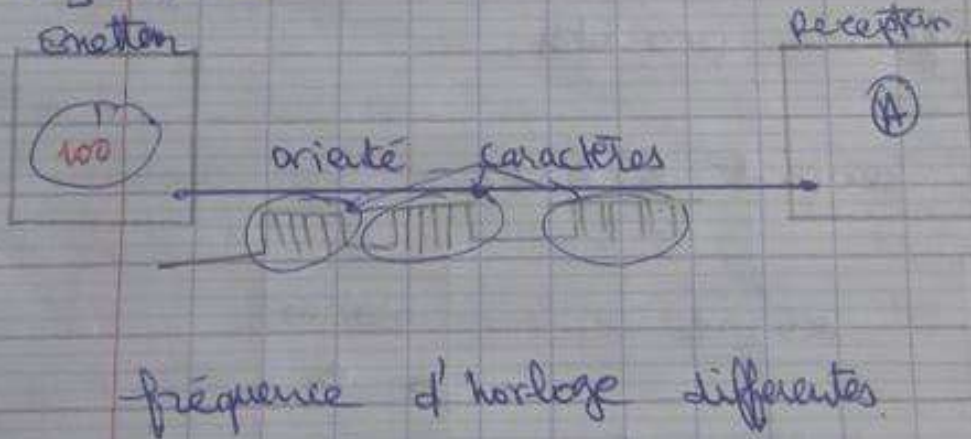 emetteur
recepteur
100
A
orienté caractères
fréquence d'horloge differentes